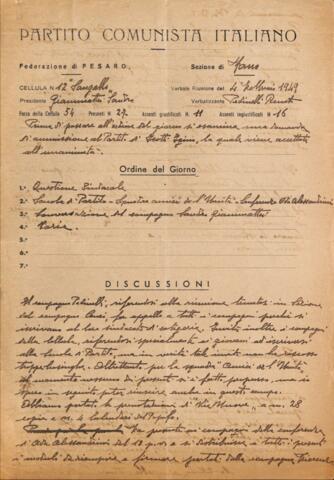 PARTITO COMUNISTA ITALIANO
Federazione di PESARO. Sezione di Fano
CELLULA N. 12ª Verbale Riunione del 4 Febbraio 1949
Presidente Giammattei Sandro Verbalizzante Renato
Forza della Cellula 54 Presenti N. 27 Assenti giustificati N. 11 Assenti ingiustificati N. 16
Prima di passare all'ordine del giorno si esamina una domanda
di ammissione al Partito di la quale viene accettata
all'unanimità.
Ordine del Giorno
1.° Questione Sindacale
2.° Scuola di Partito - amici de l'Unità - Conferenza On. Alessandrini
3.° Conversazione del compagno Sandro Giammattei
4.° Varie.
5.°
6.°
7.°
DISCUSSIONI
Il compagno riferendosi alla riunione tenutasi in Sezione
dal compagno fa appello a tutti i compagni perché si
iscrivano al loro sindacato di categoria. Invita inoltre i compagni
della Cellula, riferendosi specialmente ai giovani ad iscriversi
alla Scuola di Partito, ma un tale invito non ha riscosso
Altrettanto per la squadra "Amici de l'Unità",
al momento nessuno dei presenti si è fatto
in seguito poter riuscire anche in questo campo.
Abbiamo portato la prenotazione di Vie Nuove, a n. 28
copie e n. 4 Calendari del Popolo.
ai compagni della conferenza
d'On. Alessandrini del 13 p.v. e si distribuisce a tutti i presenti
i moduli da riempire e firmare portati dalla compagna